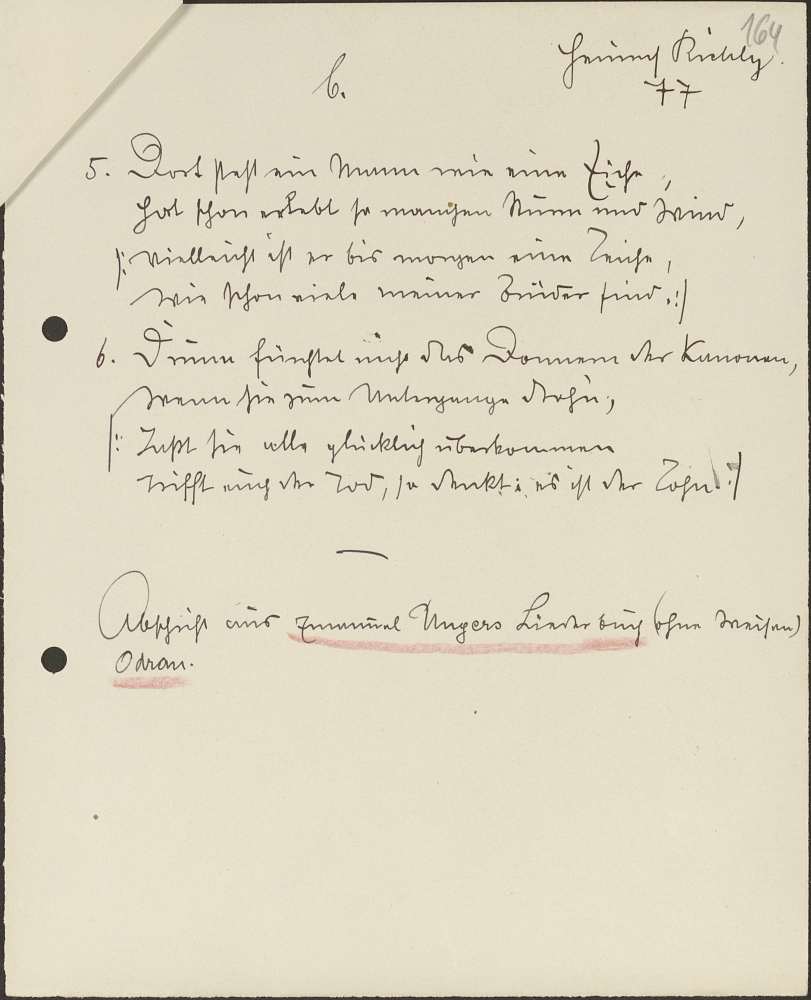 164
Heinrich Richly.
77
b.
5. Dort steht ein Mann wie eine Eiche,
hat schon erlebt so manchen Sturm und Wind,
|: vielleicht ist er bis morgen eine Leiche,
wie schon viele meiner Brüder sind. :|
6. Drum fürchtet nicht das Donnern der Kanonen,
wenn sie zum Untergange drohn,
|: Laßt sie alle glücklich überkommen
trifft euch der Tod, so denkt: es ist der Lohn. :|
Abschrift aus Emanuel Ungers Liederbuch (ohne Weisen)
Odrau.